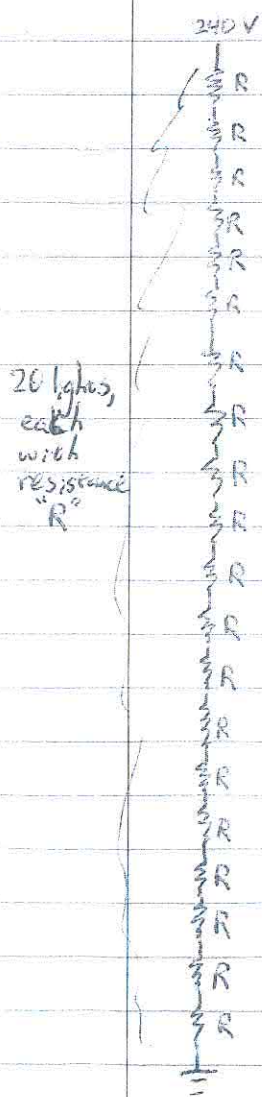 240 V
R
R
R
R
R
R
R
R
R
R
R
R
R
R
R
R
R
R
R
R
20 lights,
each
with
resistance
"R"